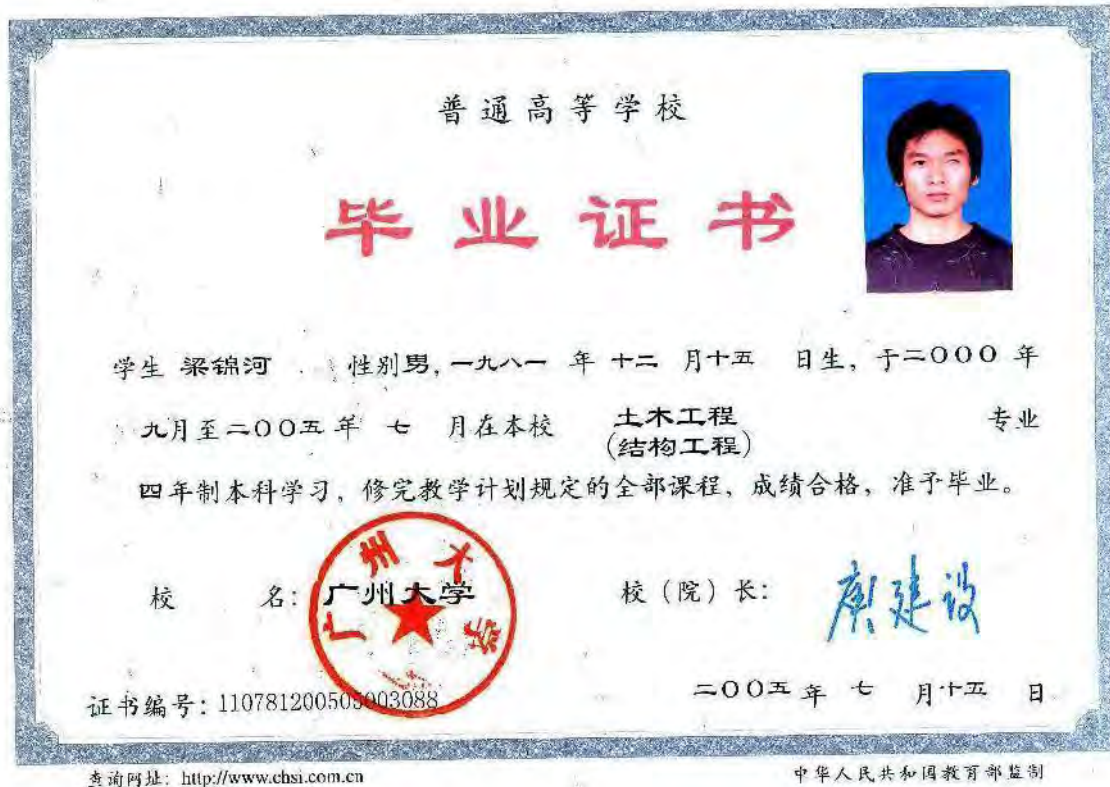 普通高等学校
毕业证书
学生 梁锦河 性别男，一九八一 年 十二 月十五 日生，于二〇〇〇 年
九月至二〇〇五年 七 月在本校 土木工程 专业
(结构工程)
四年制本科学习，修完教学计划规定的全部课程，成绩合格，准予毕业。
校 名：广州大学 校（院）长：庾建设
广州大学
证书编号：110781200505003088 二〇〇五 年 七 月十五 日
查询网址：http://www.chsi.com.cn 中华人民共和国教育部监制